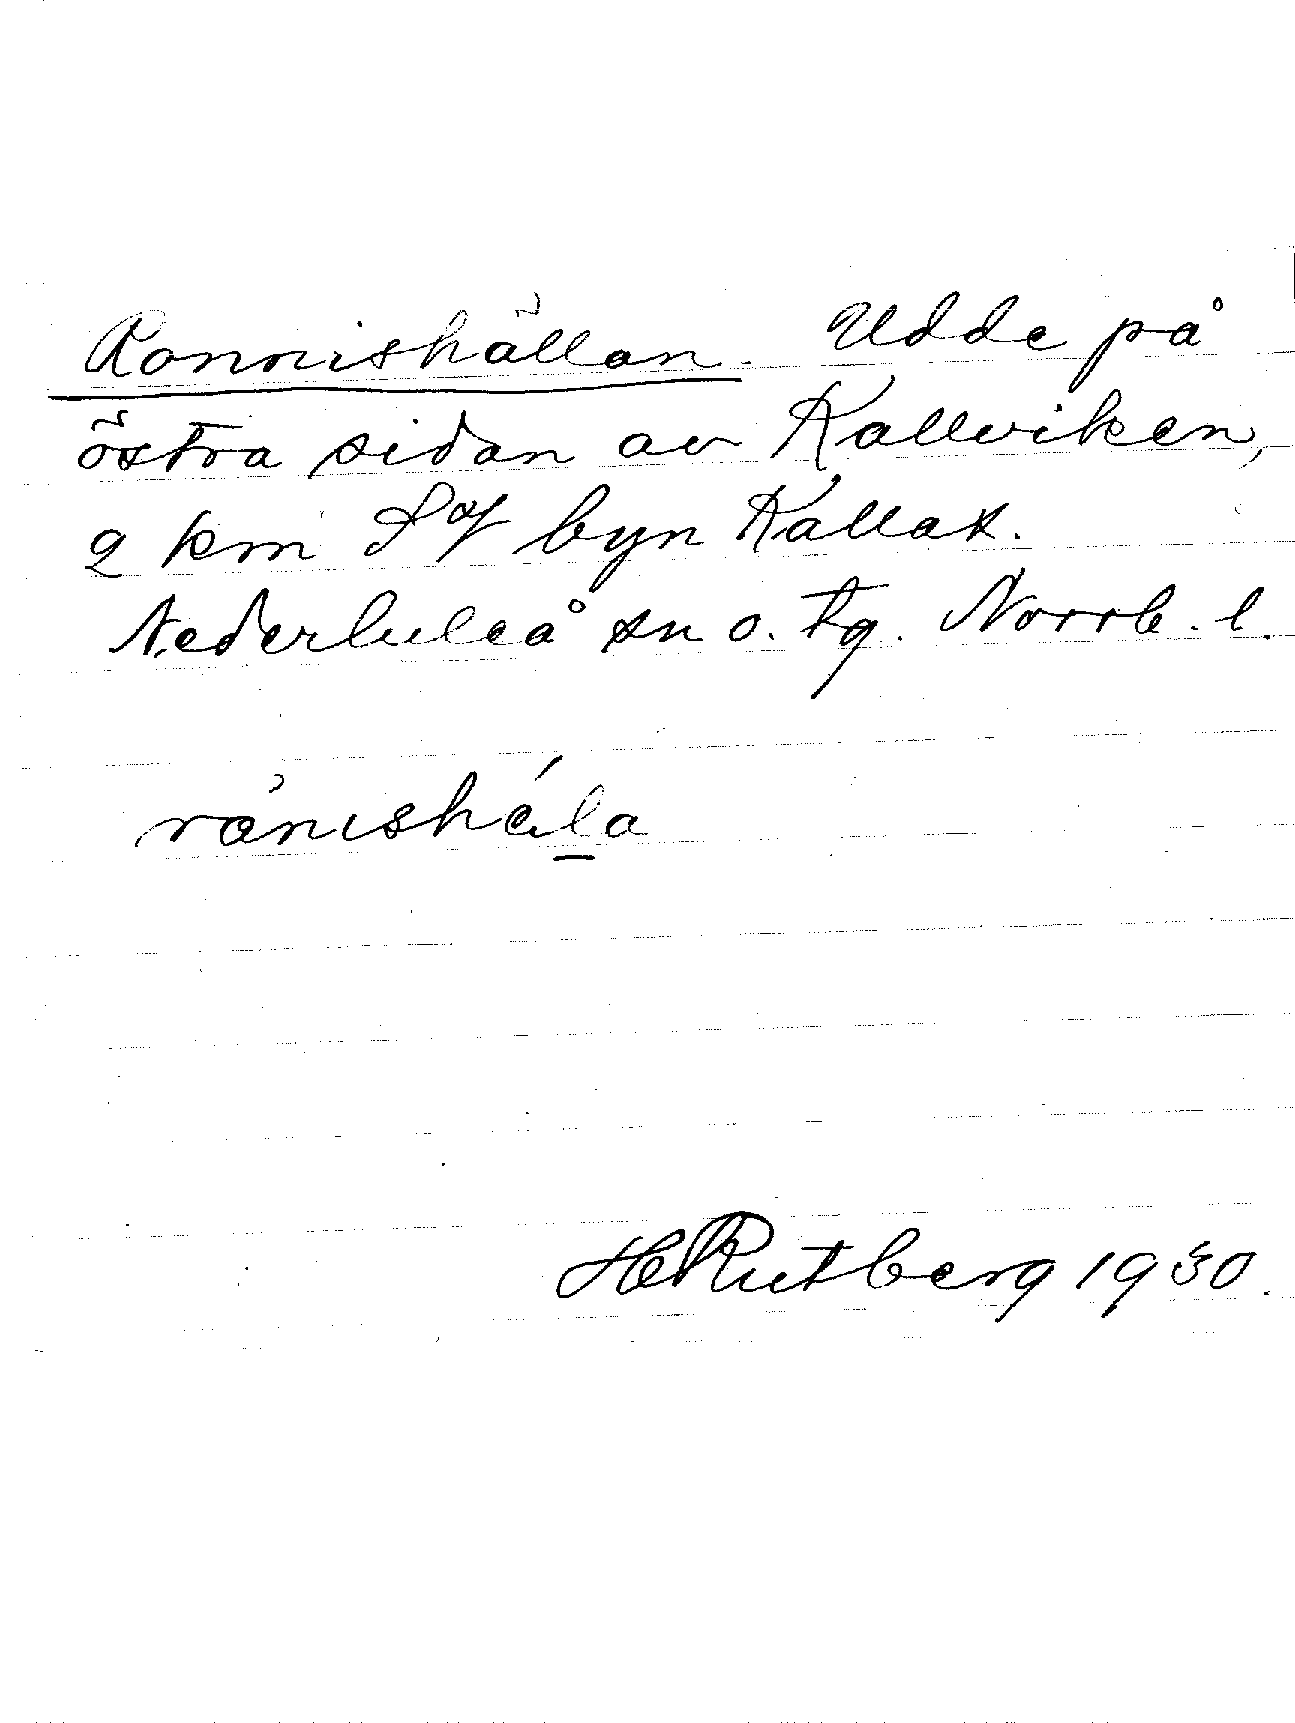 Ronnishällan. Udde på
östra sidan av Kallviken,
2 km S of byn Kallax.
Nederluleå sn o. tg. Norrb. l.
rånishála
H Rutberg 1930.